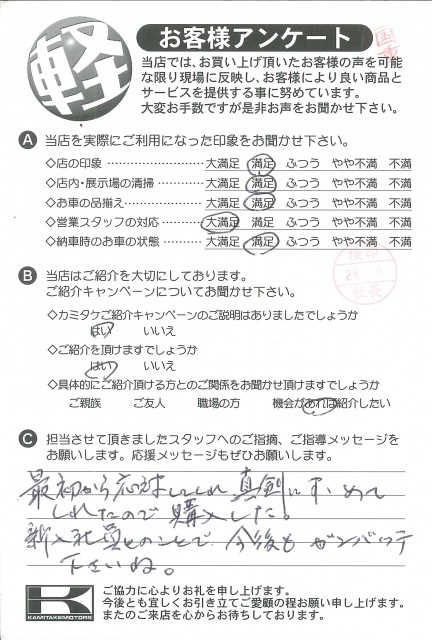 軽
お客様アンケート
当店では、お買い上げ頂いたお客様の声を可能
な限り現場に反映し、お客様により良い商品と
サービスを提供する事に努めています。
大変お手数ですが是非お声をお聞かせ下さい。
A 当店を実際にご利用になった印象をお聞かせ下さい。
◇店の印象 大満足 満足 ふつう やや不満 不満
◇店内・展示場の清掃 大満足 満足 ふつう やや不満 不満
◇お車の品揃え 大満足 満足 ふつう やや不満 不満
◇営業スタッフの対応 大満足 満足 ふつう やや不満 不満
◇納車時のお車の状態 大満足 満足 ふつう やや不満 不満
B 当店はご紹介を大切にしてあります。
ご紹介キャンペーンについてお聞かせ下さい。
◇カミタケご紹介キャンペーンのご説明はありましたでしょうか
はい いいえ
◇ご紹介を頂けますでしょうか
はい いいえ
◇具体的にご紹介頂ける方とのご関係をお聞かせ頂けますでしょうか
ご親族 ご友人 職場の方 機会があれば紹介したい
社長
C 担当させて頂きましたスタッフへのご指摘、ご指導メッセージを
お願いします。応援メッセージもぜひお願します。
最初から応対してくれ真剣にすすめて
くれたので購入した。
新入社員とのことで今後もガンバッテ
下さいね。
K
KAMITAKEMOTORS
ご協力に心よりお礼を申し上げます。
今後とも宜しくお引き立てご愛顧の程お願い申し上げます。
またのご来店を心からお待ちしております。